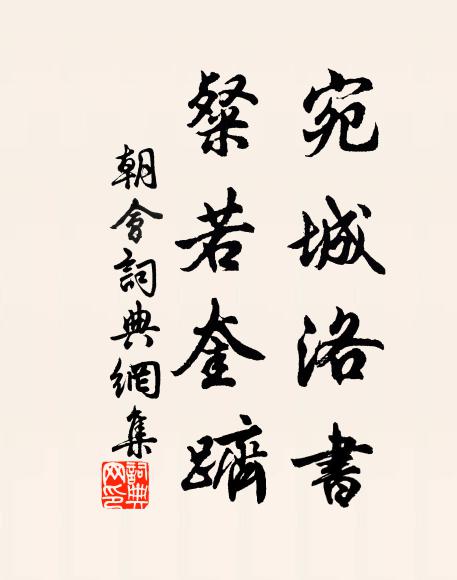 宛城洛書
粲若奎躋
朝會詞典網集
詞典网印